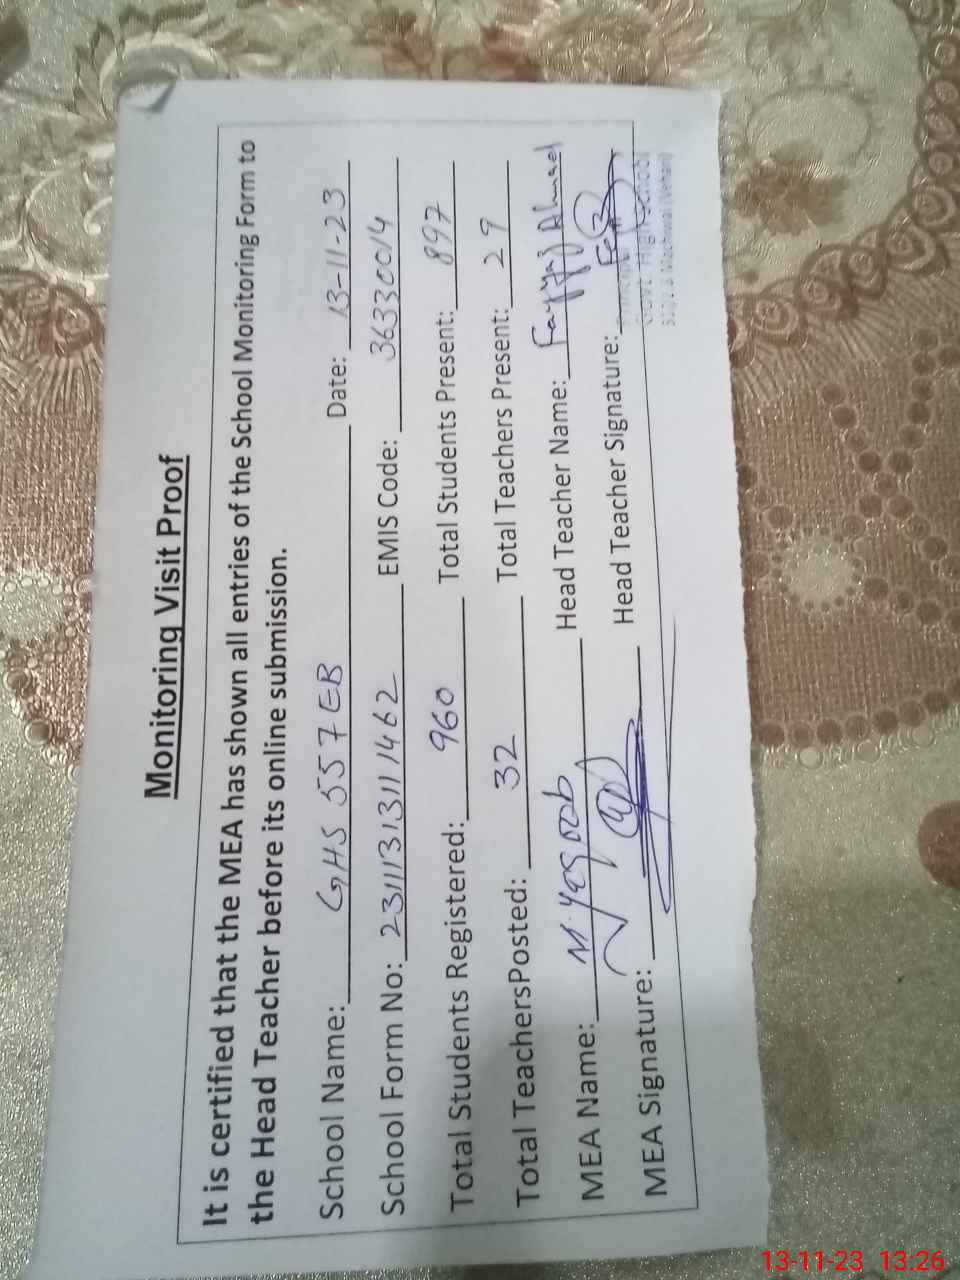 Monitoring Visit Proof
It is certified that the MEA has shown all entries of the School Monitoring Form to
the Head Teacher before its online submission.
School Name: GHS 557 EB Date: 13-11-23
School Form No: 231113131111462 EMIS Code: 36330014
Total Students Registered: 960 Total Students Present: 897
Total TeachersPosted: 32 Total Teachers Present: 29
MEA Name: M. Yaqoob Head Teacher Name: Fayyaz Ahmad
MEA Signature: Head Teacher Signature:
Govt. High School
Machiwal (Vehari)
13-11-23 13:26